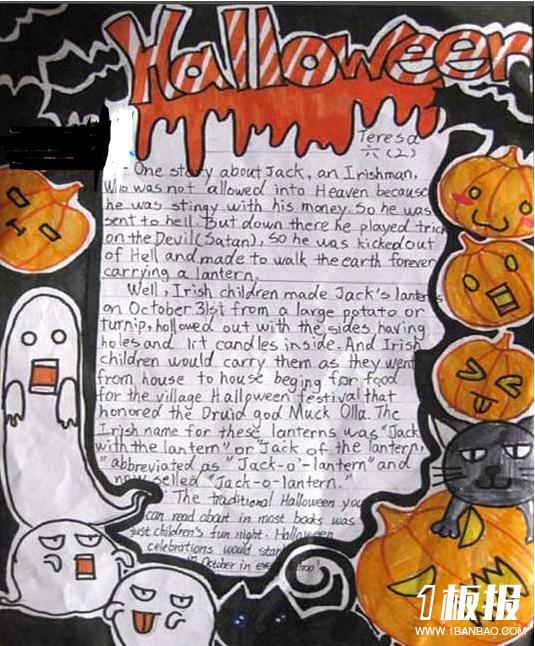 Halloween
Teresa
六(2)
One story about Jack, an Irishman,
who was not allowed into Heaven because
he was stingy with his money. So he was
sent to hell. But down there he played tric
on the Devil(Satan), so he was kicked out
of Hell and made to walk the earth forever
carrying a lantern.
Well, Irish children made Jack's lanterns
on October 31st from a large potato or
turnip, hollowed out with the sides having
holes and lit candles inside. And Irish
children would carry them as they went
from house to house beging for food
for the village Halloween festival that
honored the Druid god Muck Olla. The
Irish name for these lanterns was "Jack
with the lantern" or "Jack of the lantern,"
"abbreviated as "Jack-o'-lantern" and
now selled "Jack-o-lantern."
The traditional Halloween you
can read about in most books was
just children's fun night. Halloween
celebrations would start
in October in every
1板报
WWW.1BANBAO.COM